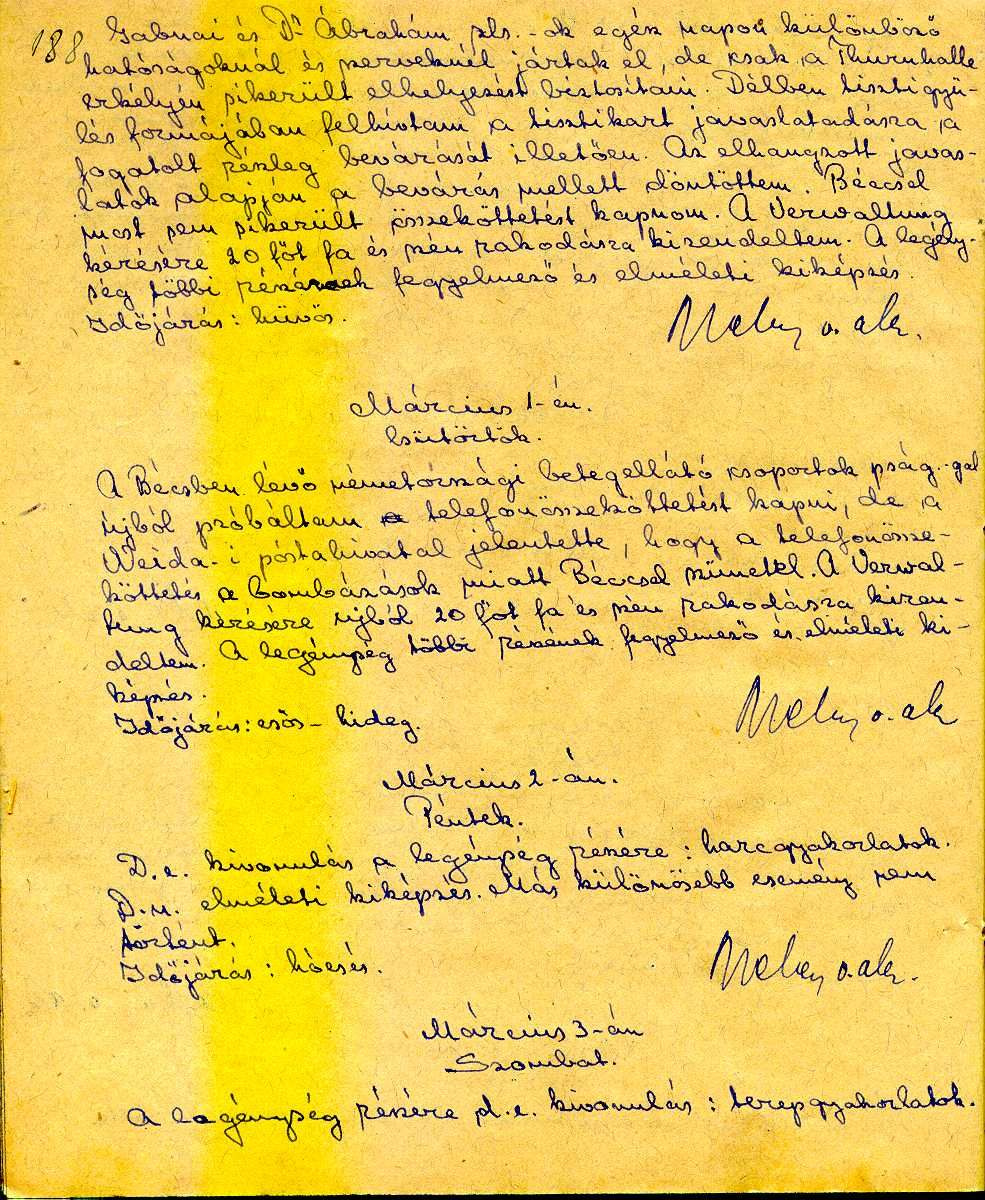 188 Gabnai és Dr Ábrahám zls.-ok egész napon különböző
hatóságoknál és szerveknél jártak el, de csak a Thurnhalle
erkélyén sikerült elhelyezést biztosítani. Délben tisztigyü-
lés formájában felhivtam a tisztikart javaslatadásra a
fogatolt részleg bevárását illetően. Az elhangzott javas-
latok alapján a bevárás mellett döntöttem. Béccsel
most sem sikerült összeköttetést kapnom. A Verwaltung
kérésére 20 főt fa és szén rakodásra kirendeltem. A legény-
ség többi részének fegyelmező és elméleti kiképzés.
Időjárás: hüvös.
o. alez.
Március 1-én.
Csütörtök.
A Bécsben lévő németországi betegellátó csoportok pság.-gal
ujból próbáltam a telefonösszeköttetést kapni, de a
Weida-i postahivatal jelentette, hogy a telefonössze-
köttetés a bombázások miatt Béccsel szünetel. A Verwal-
tung kérésére ujból 20 főt fa és szén rakodásra kiren-
deltem. A legénység többi részének fegyelmező és elméleti ki-
képzés.
Időjárás: esős – hideg.
o. alez
Március 2-án.
Péntek.
D.e. kivonulás a legénység részére: harcgyakorlatok.
D.u. elméleti kiképzés. Más különösebb esemény nem
történt.
Időjárás: hóesés.
o. alez.
Március 3-án
Szombat.
A legénység részére d.e. kivonulás: terepgyakorlatok.